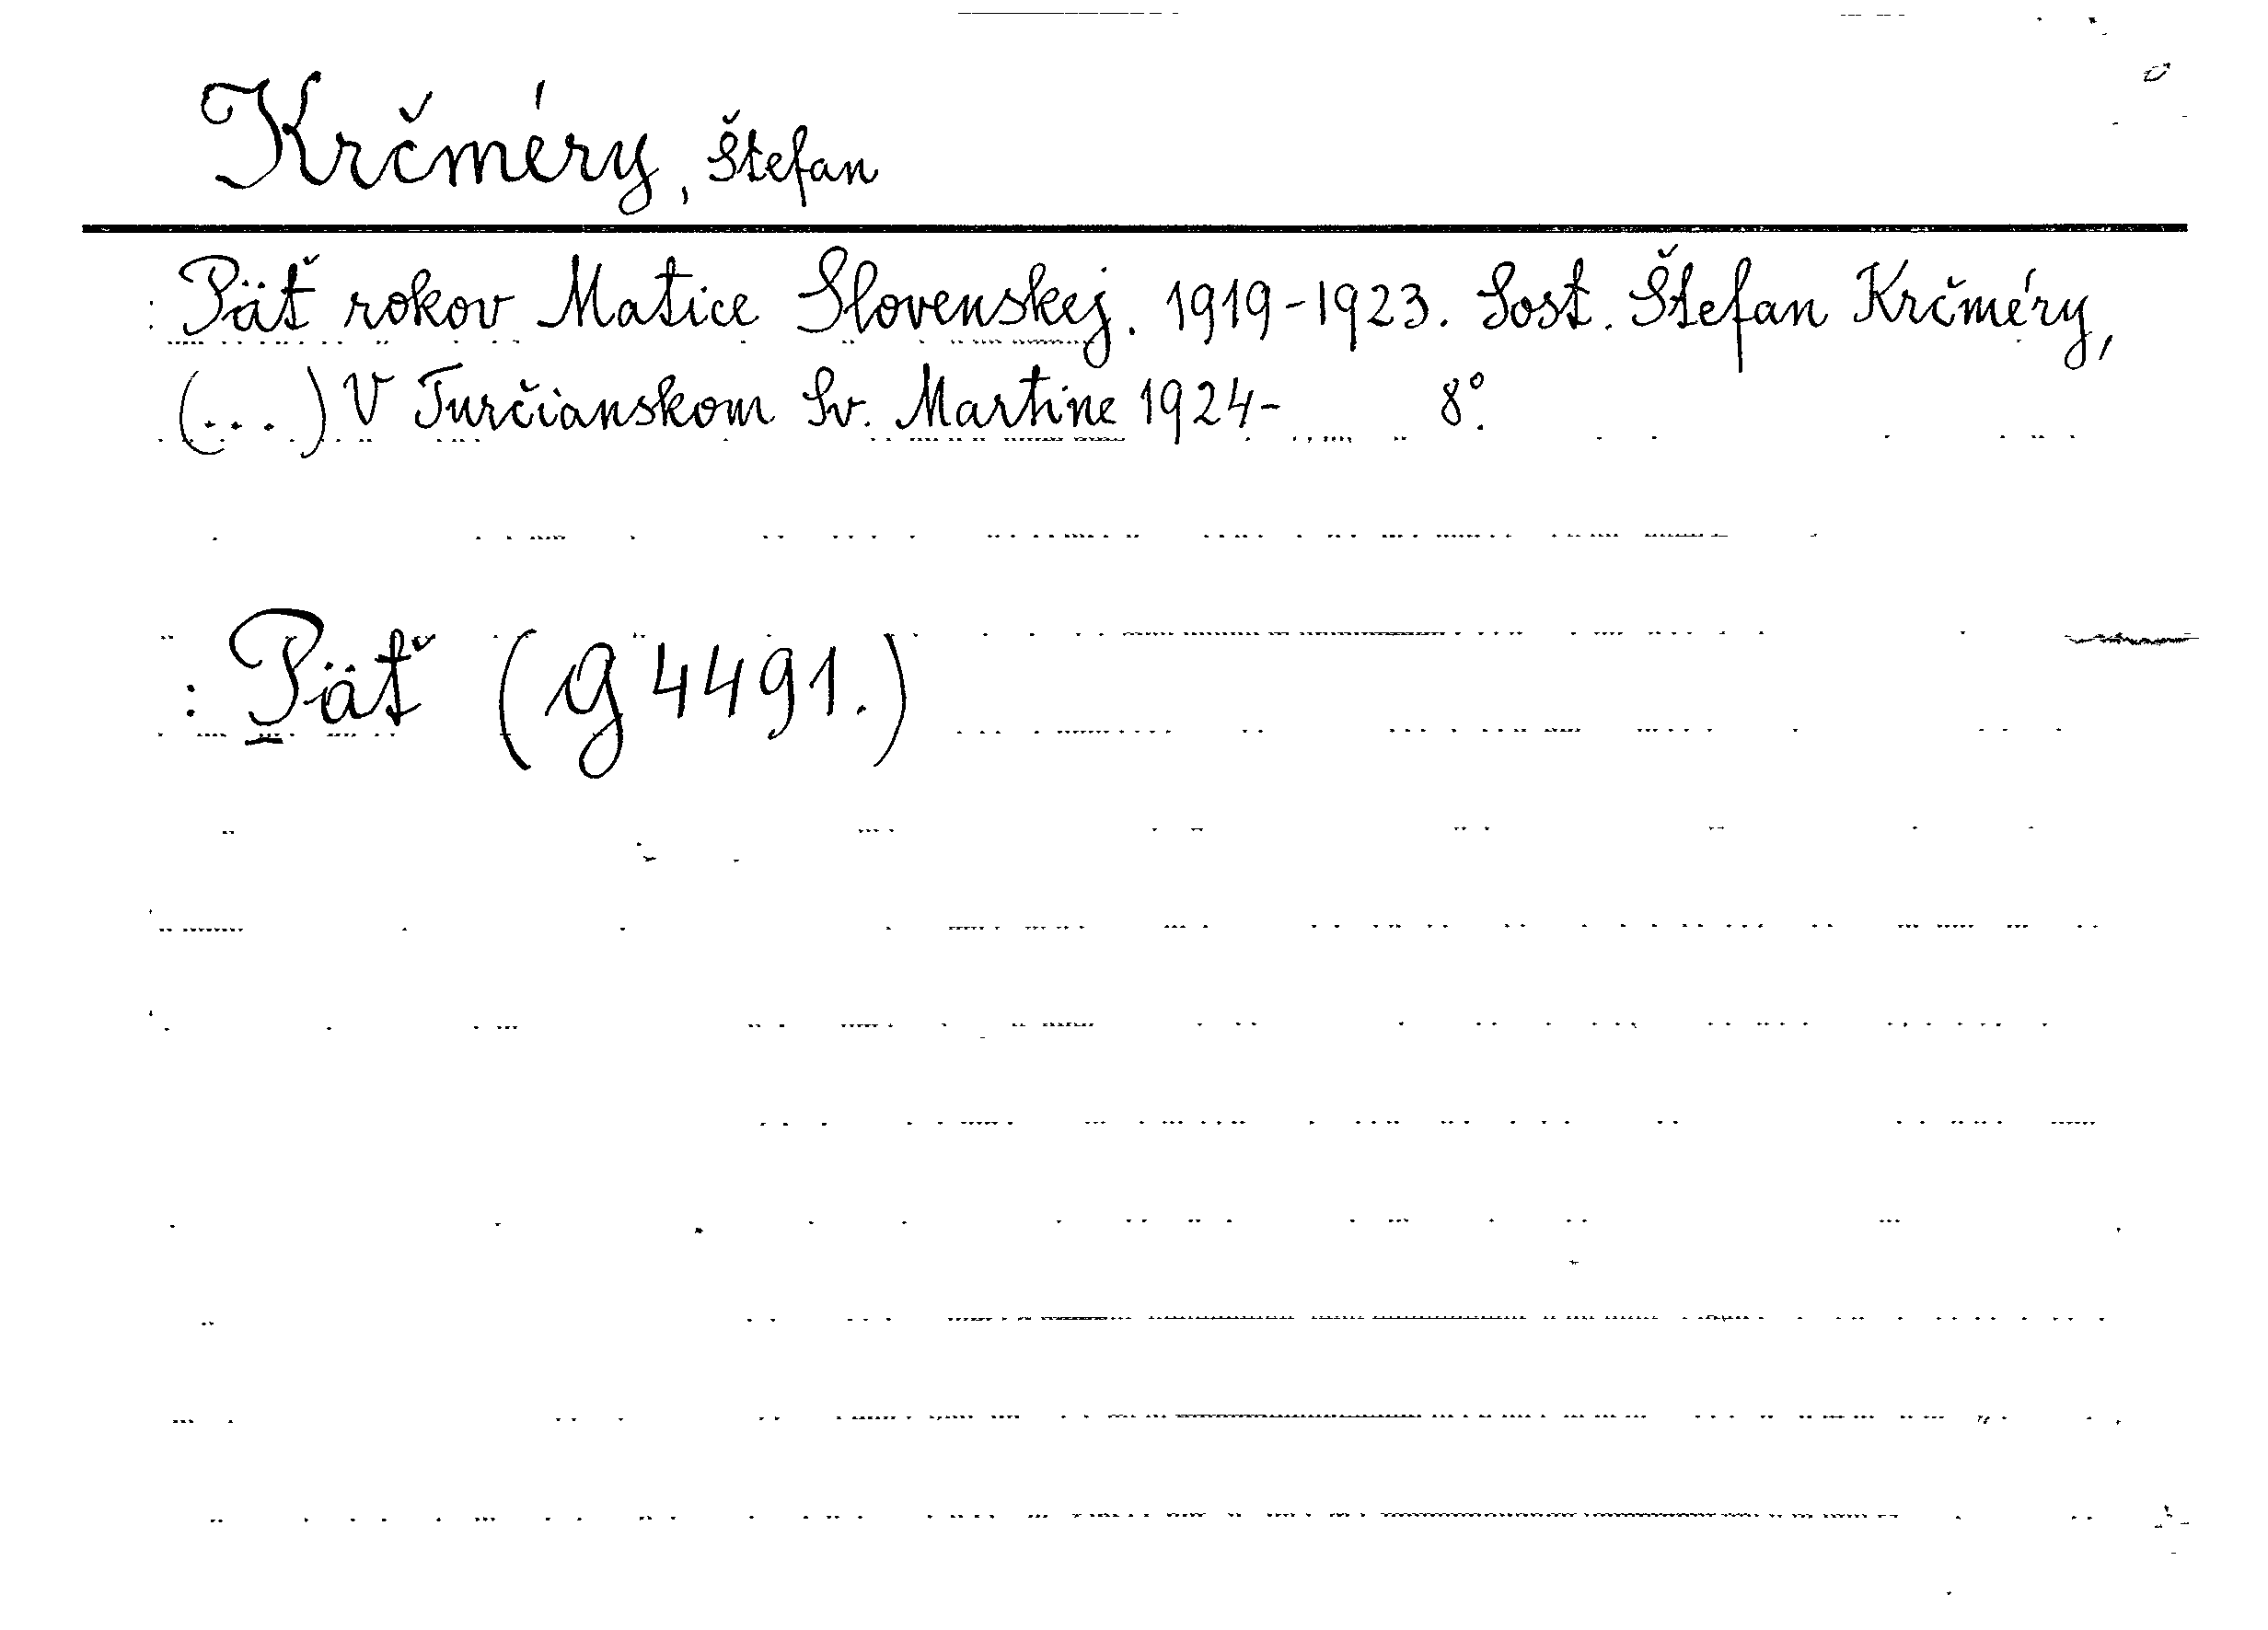 Krčméry, Štefan
: Päť rokov Matice Slovenskej. 1919-1923. Sost. Štefan Krčméry,
(...) V Turčianskom Sv. Martine 1924- 8°.
: Päť (g 4491.)